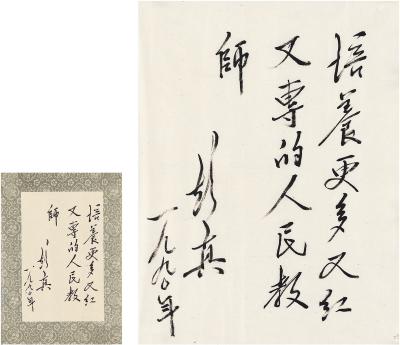 培養更多又紅
又專的人民教
師
彭真
一九九〇年
培養更多又紅
又專的人民教
師
彭真
一九九〇年